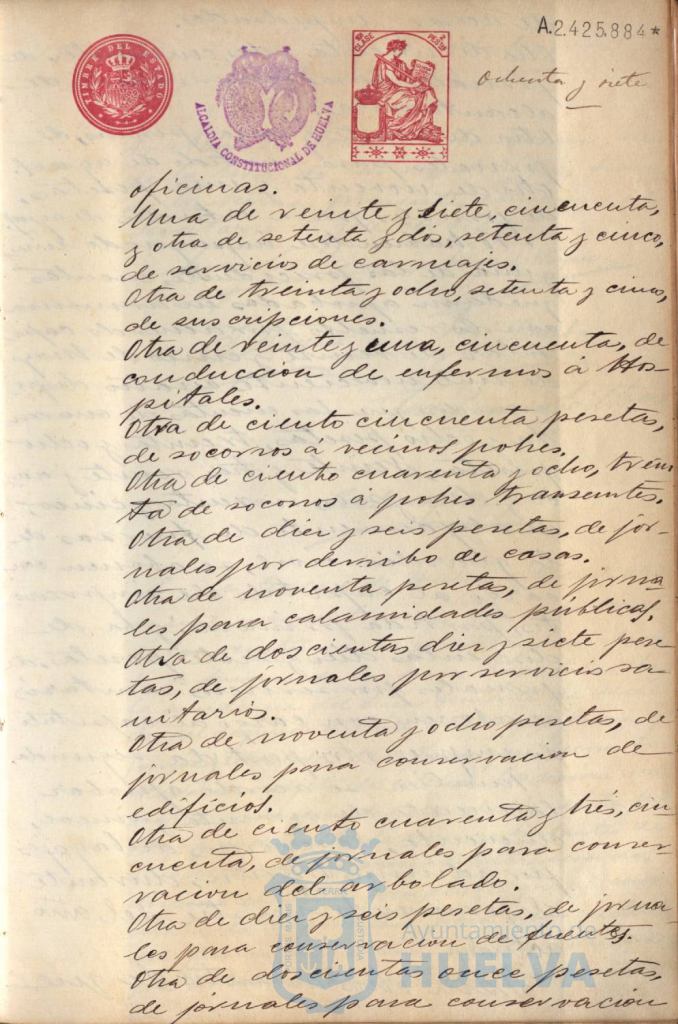 A.2.425.884*
TIMBRE DEL ESTADO
ALCALDIA CONSTITUCIONAL DE HUELVA
CLASE
PESETAS
Ochenta y siete
oficinas.
Una de veinte y siete, cincuenta,
y otra de setenta y dos, setenta y cinco,
de servicios de carruajes.
Otra de treinta y ocho, setenta y cinco,
de suscripciones.
Otra de veinte y una, cincuenta, de
conduccion de enfermos á Hos-
pitales.
Otra de ciento cincuenta pesetas,
de socorros á vecinos pobres.
Otra de ciento cuarenta y ocho, trein
ta de socorros á pobres transeuntes.
Otra de diez y seis pesetas, de jor-
nales por derribo de casas.
Otra de noventa pesetas, de jorna
les para calamidades públicas.
Otra de doscientas diez y siete pese
tas, de jornales por servicios sa-
nitarios.
Otra de noventa y ocho pesetas, de
jornales para conservacion de
edificios.
Otra de ciento cuarenta y trés, cin
cuenta, de jornales para conser-
vacion del arbolado.
Otra de diez y seis pesetas, de jorna
les para conservacion de fuentes.
Otra de doscientas once pesetas,
de jornales para conservacion
Ayuntamiento de
HUELVA